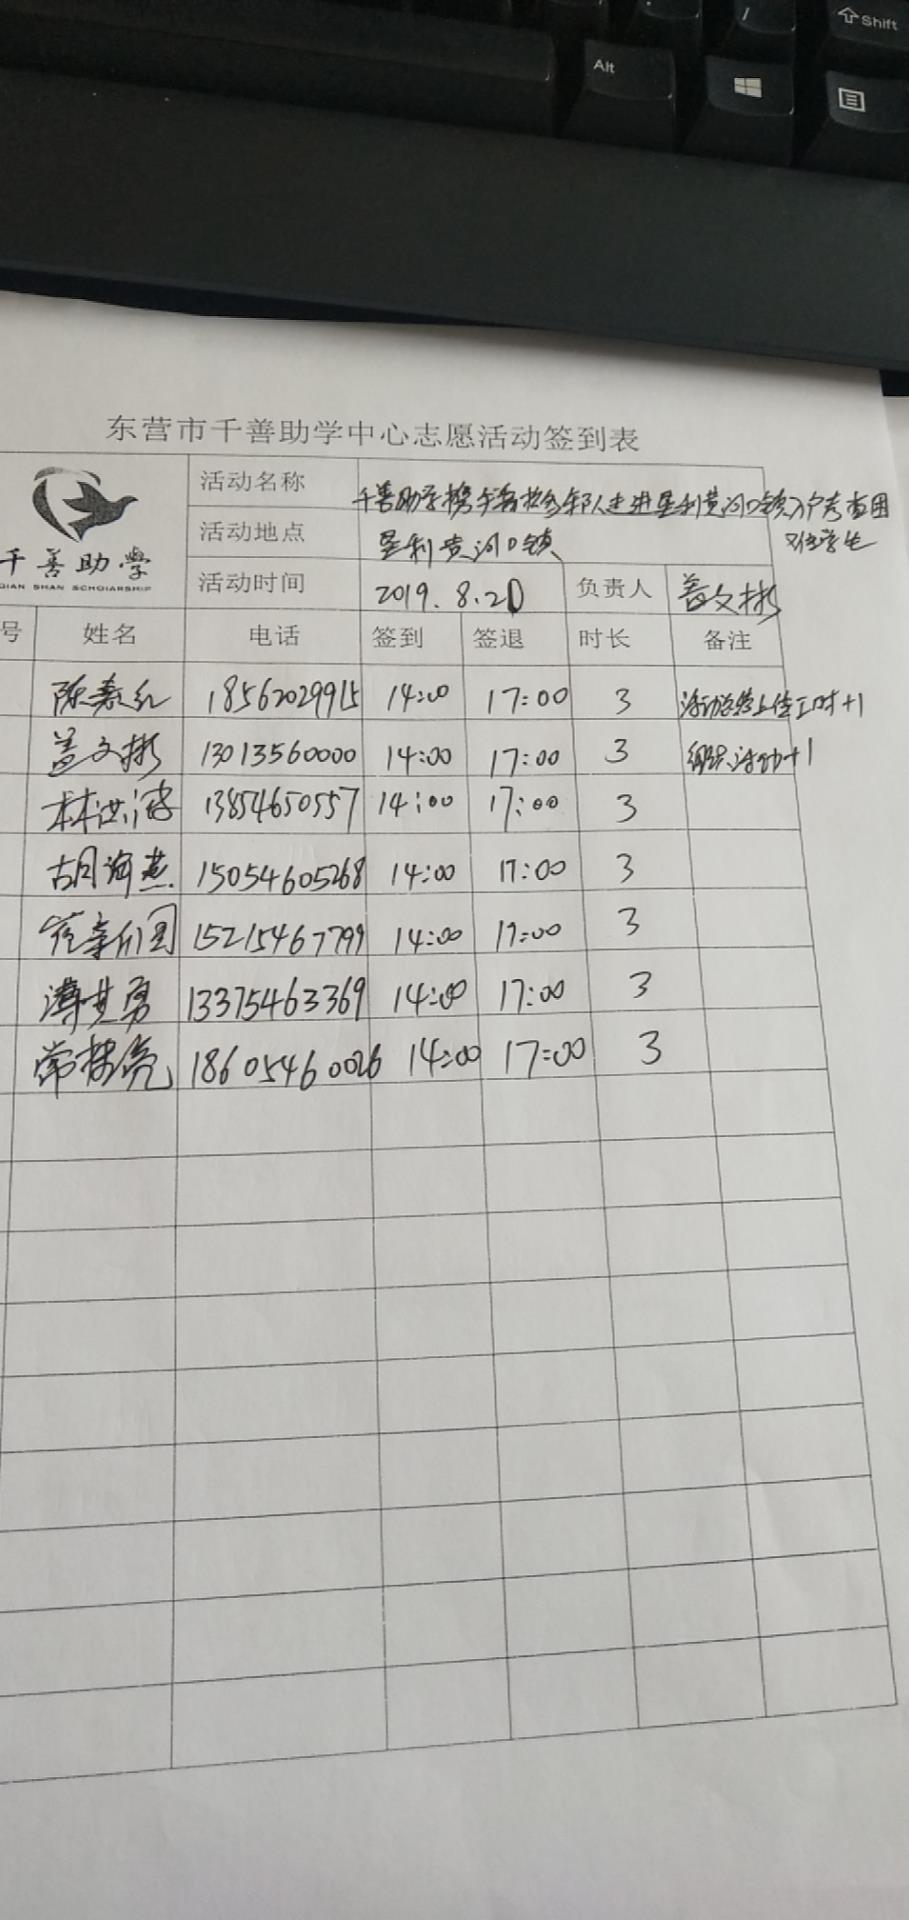 Shift
Alt
东营市千善助学中心志愿活动签到表
千善助学
QIAN SHAN SCHOLARSHIP
活动名称 千善助学携 走进垦利黄河口镇入户考查困
学生
活动地点 垦利黄河口镇
活动时间 2019.8.21 负责人 盖文彬
号 姓名 电话 签到 签退 时长 备注
陈嘉红 18562029915 14:00 17:00 3 +1
盖文彬 13013560000 14:00 17:00 3 组织活动+1
林洪涛 13854650557 14:00 17:00 3
胡海燕 15054605268 14:00 17:00 3
15215467799 14:00 17:00 3
薄其勇 13375463369 14:00 17:00 3
常亮 18605460026 14:00 17:00 3